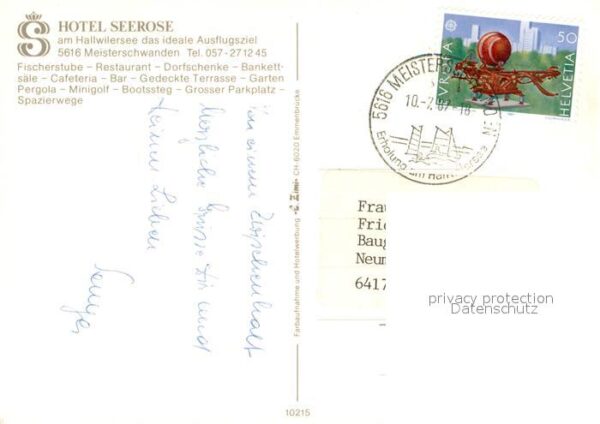 HOTEL SEEROSE
am Hallwilersee das ideale Ausflugsziel
5616 Meisterschwanden Tel. 057-27 12 45
Fischerstube – Restaurant – Dorfschenke – Bankett-
säle – Cafeteria – Bar – Gedeckte Terrasse – Garten
Pergola – Minigolf – Bootssteg – Grosser Parkplatz –
Spazierwege
Von einem Zwischenhalt
herzliche Grüsse Dir und
Deinen Lieben
Farbaufnahme und Hotelwerbung CH-6020 Emmenbrücke
10215
50
HELVETIA
5616 MEISTERS
10.-7.87-18
Erholung am Hallwilersee
Frau
Frie
Baug
Neun
6417
privacy protection
Datenschutz